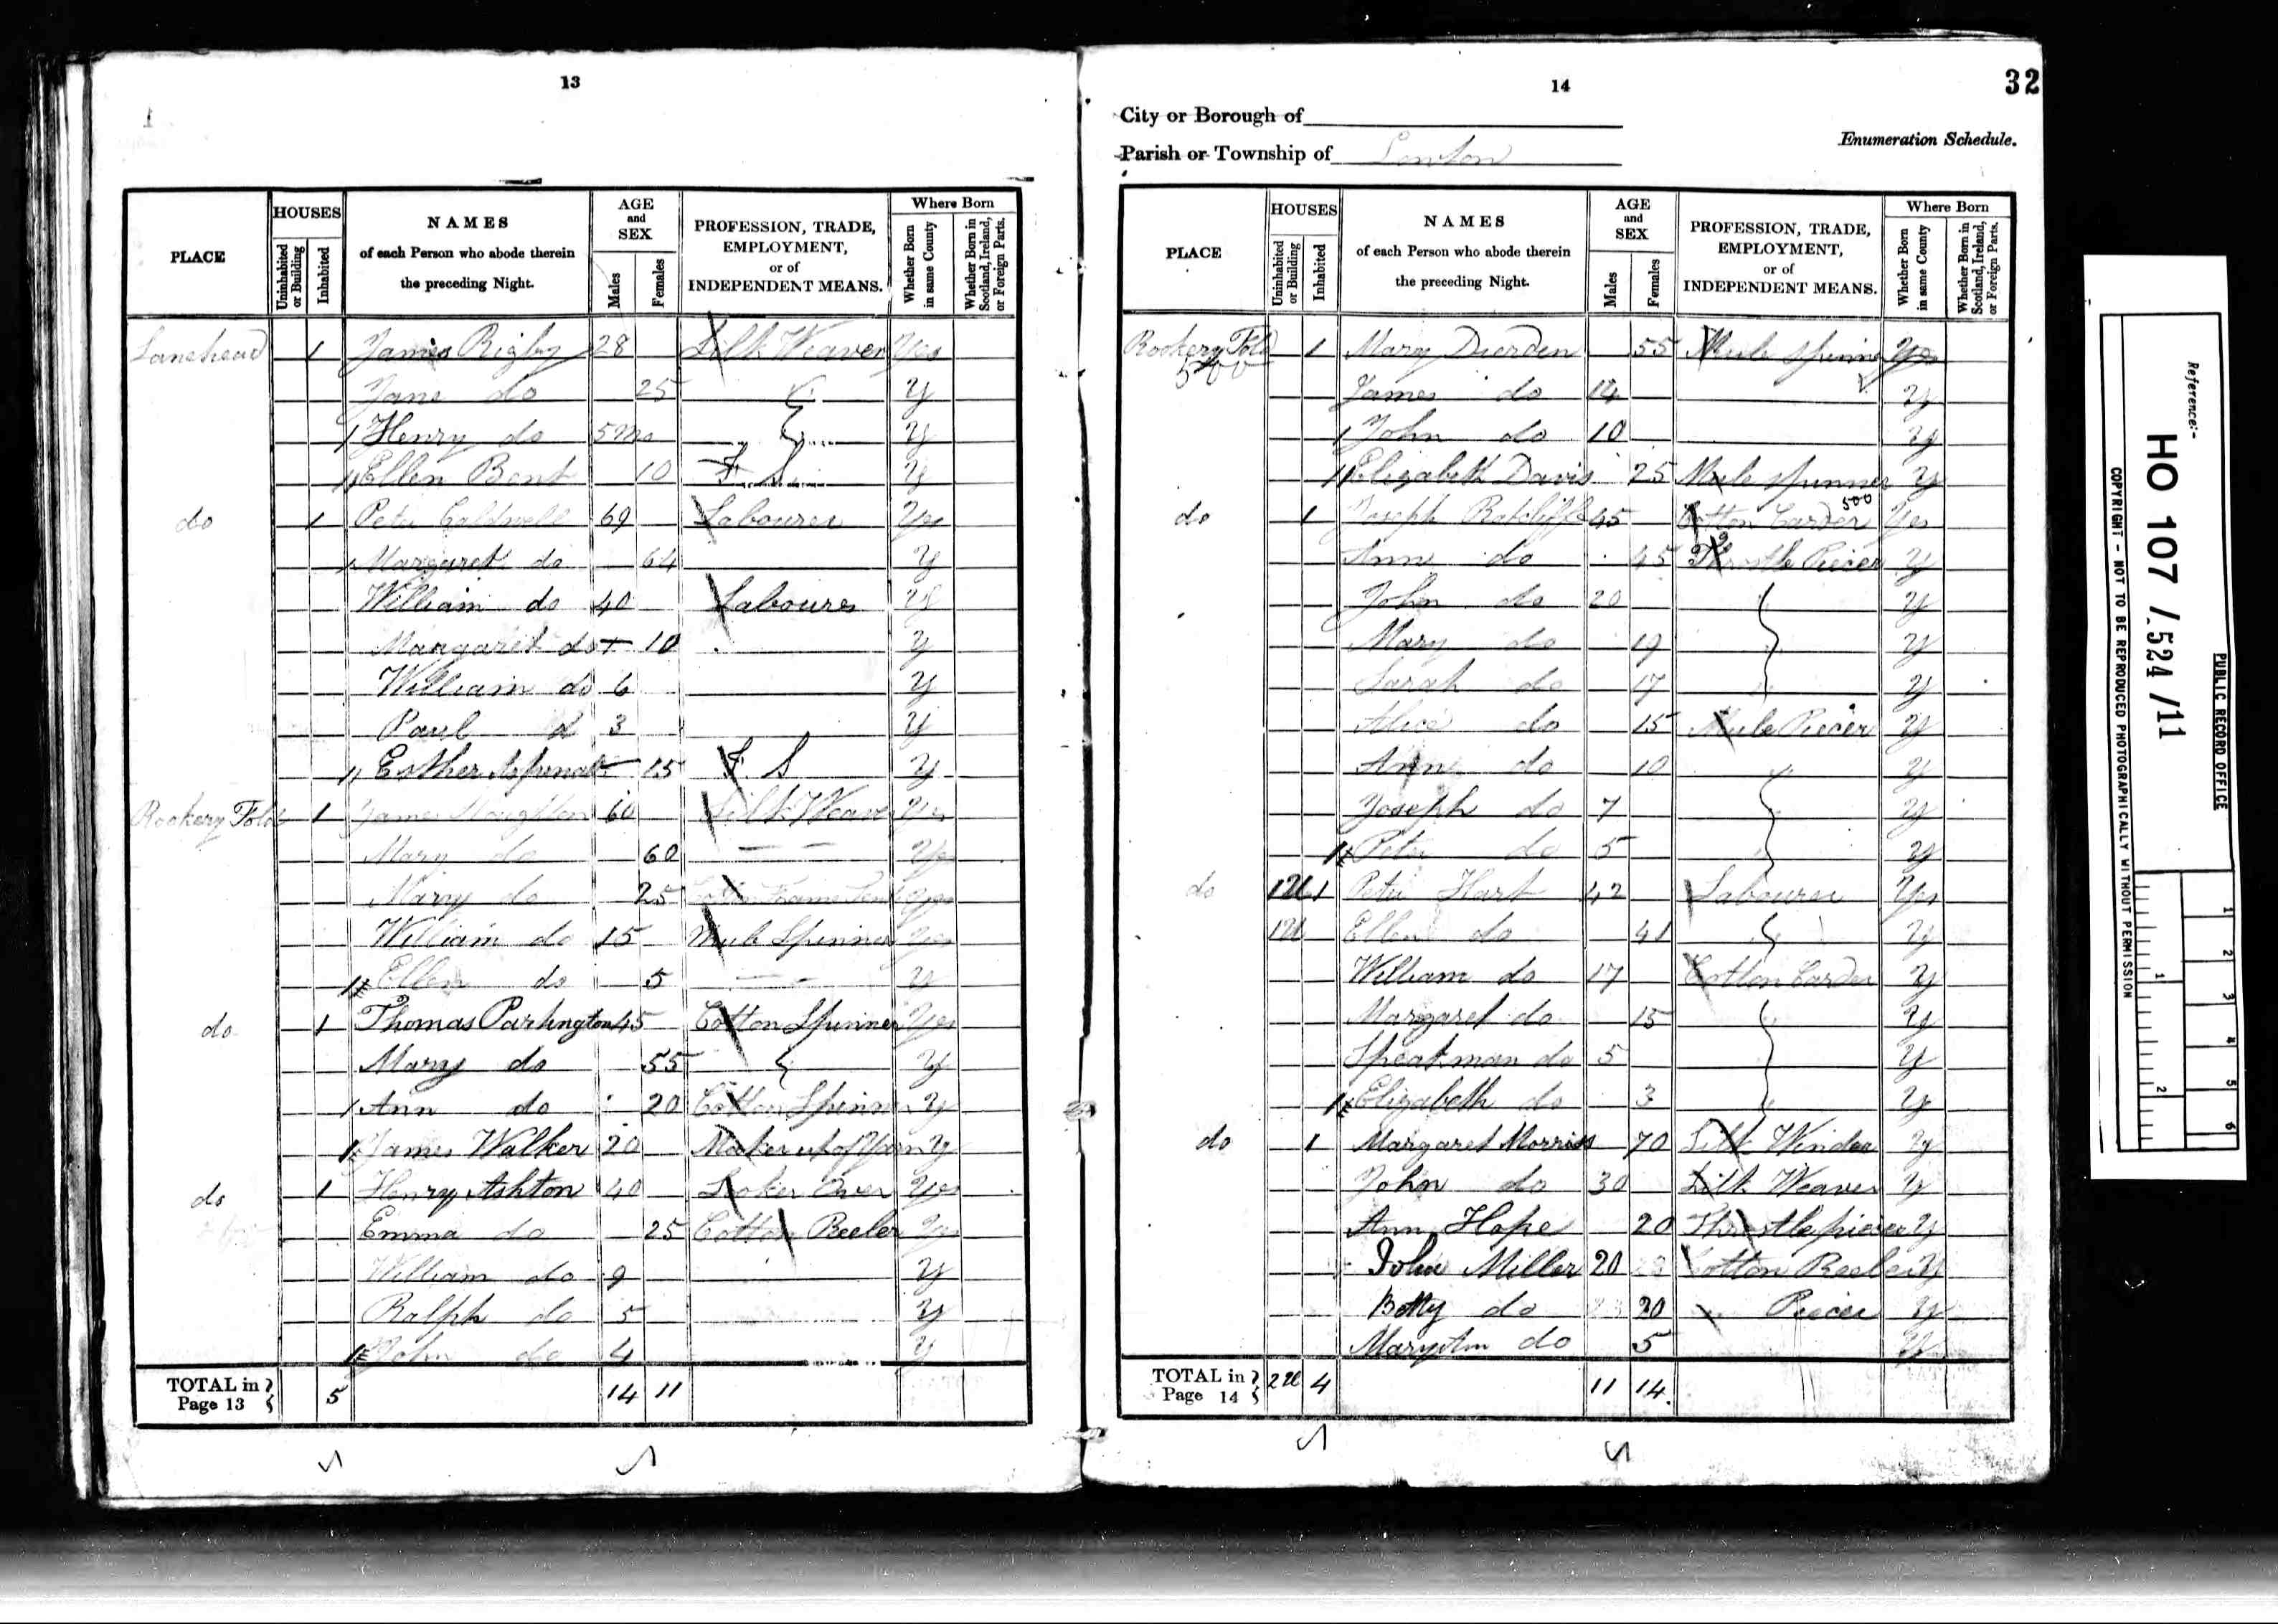 13
PLACE
HOUSES
Uninhabited or Building
Inhabited
NAMES
of each Person who abode therein
the preceding Night.
AGE
and
SEX
Males
Females
PROFESSION, TRADE,
EMPLOYMENT,
or of
INDEPENDENT MEANS.
Where Born
Whether Born in same County
Whether Born in Scotland, Ireland, or Foreign Parts.
Lanehead 1 James Rigby 28 Silk Weaver Yes
Jane do 25 Y
Henry do 5 Mo Y
Ellen Bent 10 F. S. Y
do 1 Peter Caldwell 69 Labourer Yes
Margaret do 64 Y
William do 40 Labourer Y
Margaret do 10 Y
William do 6 Y
Paul d 3 Y
Esther 15 F. S Y
Rookery Fold 1 James Houghton 60 Silk Weaver Yes
Mary do 60 Yes
Mary do 25 Frame Yes
William do 15 Mule Spinner Yes
Ellen do 5 Y
do 1 Thomas Partington 45 Cotton Spinner Yes
Mary do 55 Y
Ann do 20 Cotton Spinner Y
James Walker 20 Maker up of Yarn Y
do 1 Henry Ashton 40 Looker Over Yes
Emma do 25 Cotton Reeler Yes
William do 9 Y
Ralph do 5 Y
John do 4 Y
TOTAL in Page 13 5 14 11
14
32
City or Borough of
Parish or Township of Lowton
Enumeration Schedule.
PLACE
HOUSES
Uninhabited or Building
Inhabited
NAMES
of each Person who abode therein
the preceding Night.
AGE
and
SEX
Males
Females
PROFESSION, TRADE,
EMPLOYMENT,
or of
INDEPENDENT MEANS.
Where Born
Whether Born in same County
Whether Born in Scotland, Ireland, or Foreign Parts.
Rookery Fold 1 Mary Dierden 55 Mule spinner Yes
500
James do 14 Y
John do 10 Y
Elizabeth Davis 25 Mule spinner Y
500
do 1 Joseph Ratcliffe 45 Cotton Carder Yes
Ann do 45 Throstle Piecer Y
John do 20 Y
Mary do 19 Y
Sarah do 17 Y
Alice do 15 Mule Piecer Y
Ann do 10 Y
Joseph do 7 Y
Peter do 5 Y
do 1U 1 Peter Hart 42 Labourer Yes
1U Ellen do 41 Y
William do 17 Cotton Carder Y
Margaret do 15 Y
Speakman do 5 Y
Elizabeth do 3 Y
do 1 Margaret Morriss 70 Silk Winder Y
John do 30 Silk Weaver Y
Ann Hope 20 Throstle piecer Y
John Miller 20 Cotton Reeler Y
Betty do 20 Piecer Y
MaryAnn do 5 Y
TOTAL in Page 14 2U 4 11 14
PUBLIC RECORD OFFICE
Reference:-
HO 107 / 524 / 11
COPYRIGHT - NOT TO BE REPRODUCED PHOTOGRAPHICALLY WITHOUT PERMISSION
1 2 3 4 5 6
1 2